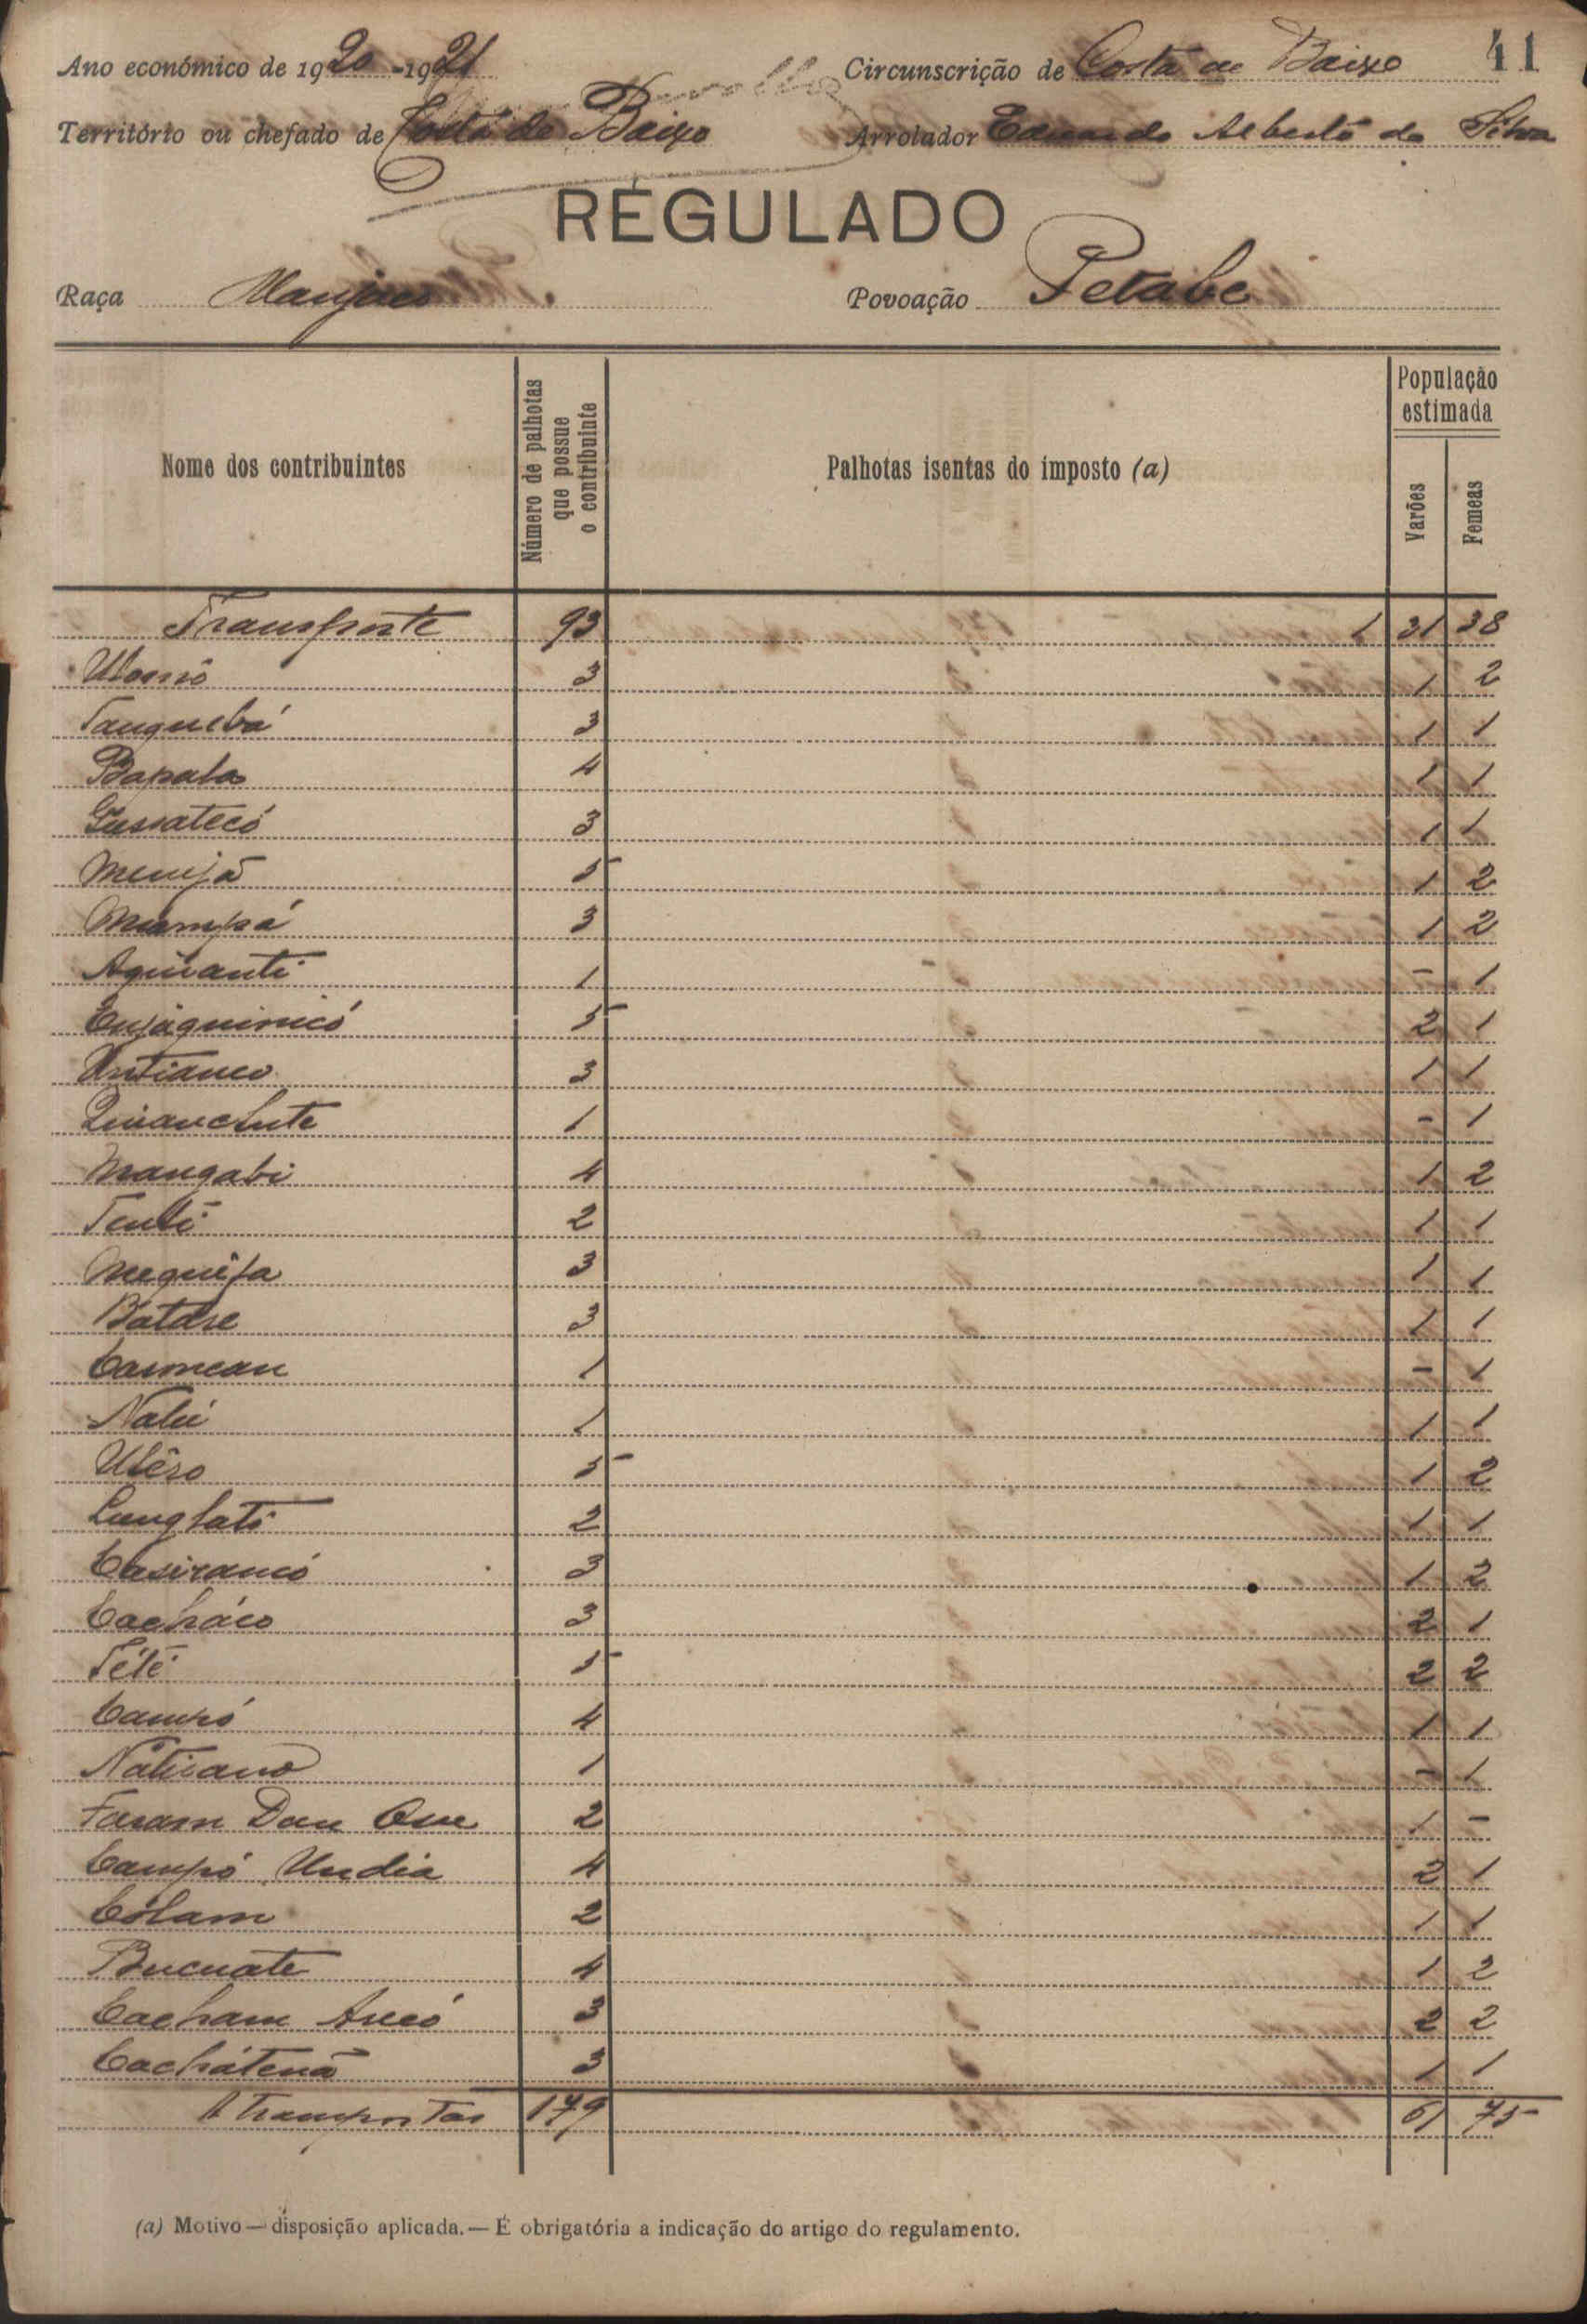 Ano económico de 1920-1921 Circunscrição de Costa de Baixo 41
Território ou chefado de Costa de Baixo Arrolador Eduardo Alberto da Silva
REGULADO
Raça Manjaco Povoação Petabe
Nome dos contribuintes Número de palhotas que possue o contribuinte Palhotas isentas do imposto (a) População estimada Varões Femeas
Transporte 93 1 31 38
3 1 2
Tanquebá 3 1 1
Bapala 4 1 1
Gussatecó 3 1 1
Menijã 5 1 2
Mampá 3 1 2
Aquianti 1 - 1
Cujaquinicó 5 2 1
Untianco 3 1 1
Quianchute 1 - 1
Mangabi 4 1 2
Tentí 2 1 1
Mequifa 3 1 1
Batare 3 1 1
1 - 1
Natú 1 1 1
Ulêso 5 1 2
Lunglato 2 1 1
3 1 2
Cacháco 3 2 1
Télé 5 2 2
4 1 1
1 - 1
2 1 -
Campó Undia 4 2 1
Cólam 2 1 1
Bucuate 4 1 2
Cacham Aucó 3 2 2
Cachátenã 3 1 1
A transportar 179 61 75
(a) Motivo — disposição aplicada. — É obrigatória a indicação do artigo do regulamento.